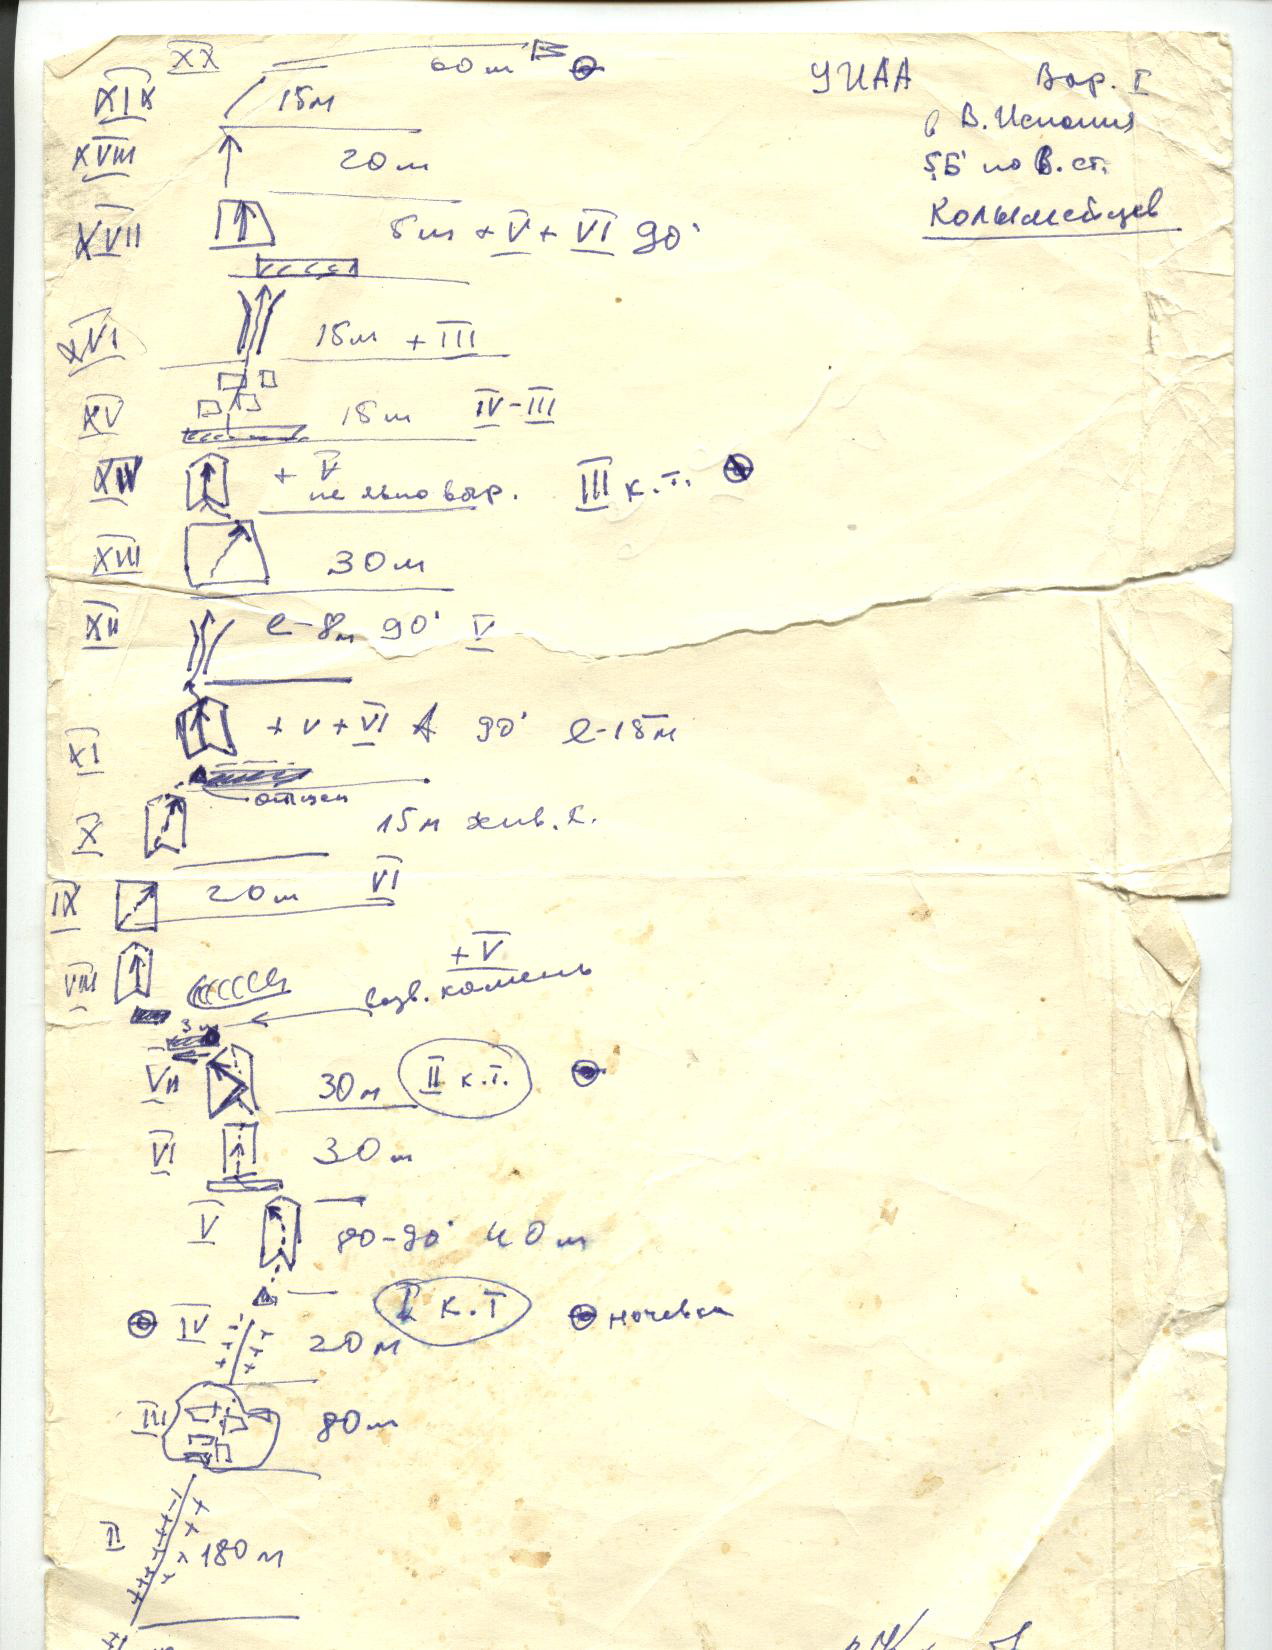 XX 60 м
УИАА Вар. I
XIX 15м
в В. Испания
XVIII 20м
5Б по В. ст.
Колымейцев
XVII 5м + V + VI 90°
XVI 15м + III
XV 15м IV-III
XIV + V III к.т.
XIII 30м
XII l-8м 90° V
XI + V + VI A 90° l-15м
X 15м
IX 20м VI
VIII + V
камень
3м
VII 30м II к.т.
VI 30м
V 80-90° 40м
I к.т
IV 20м ночевка
III 80м
II 180м